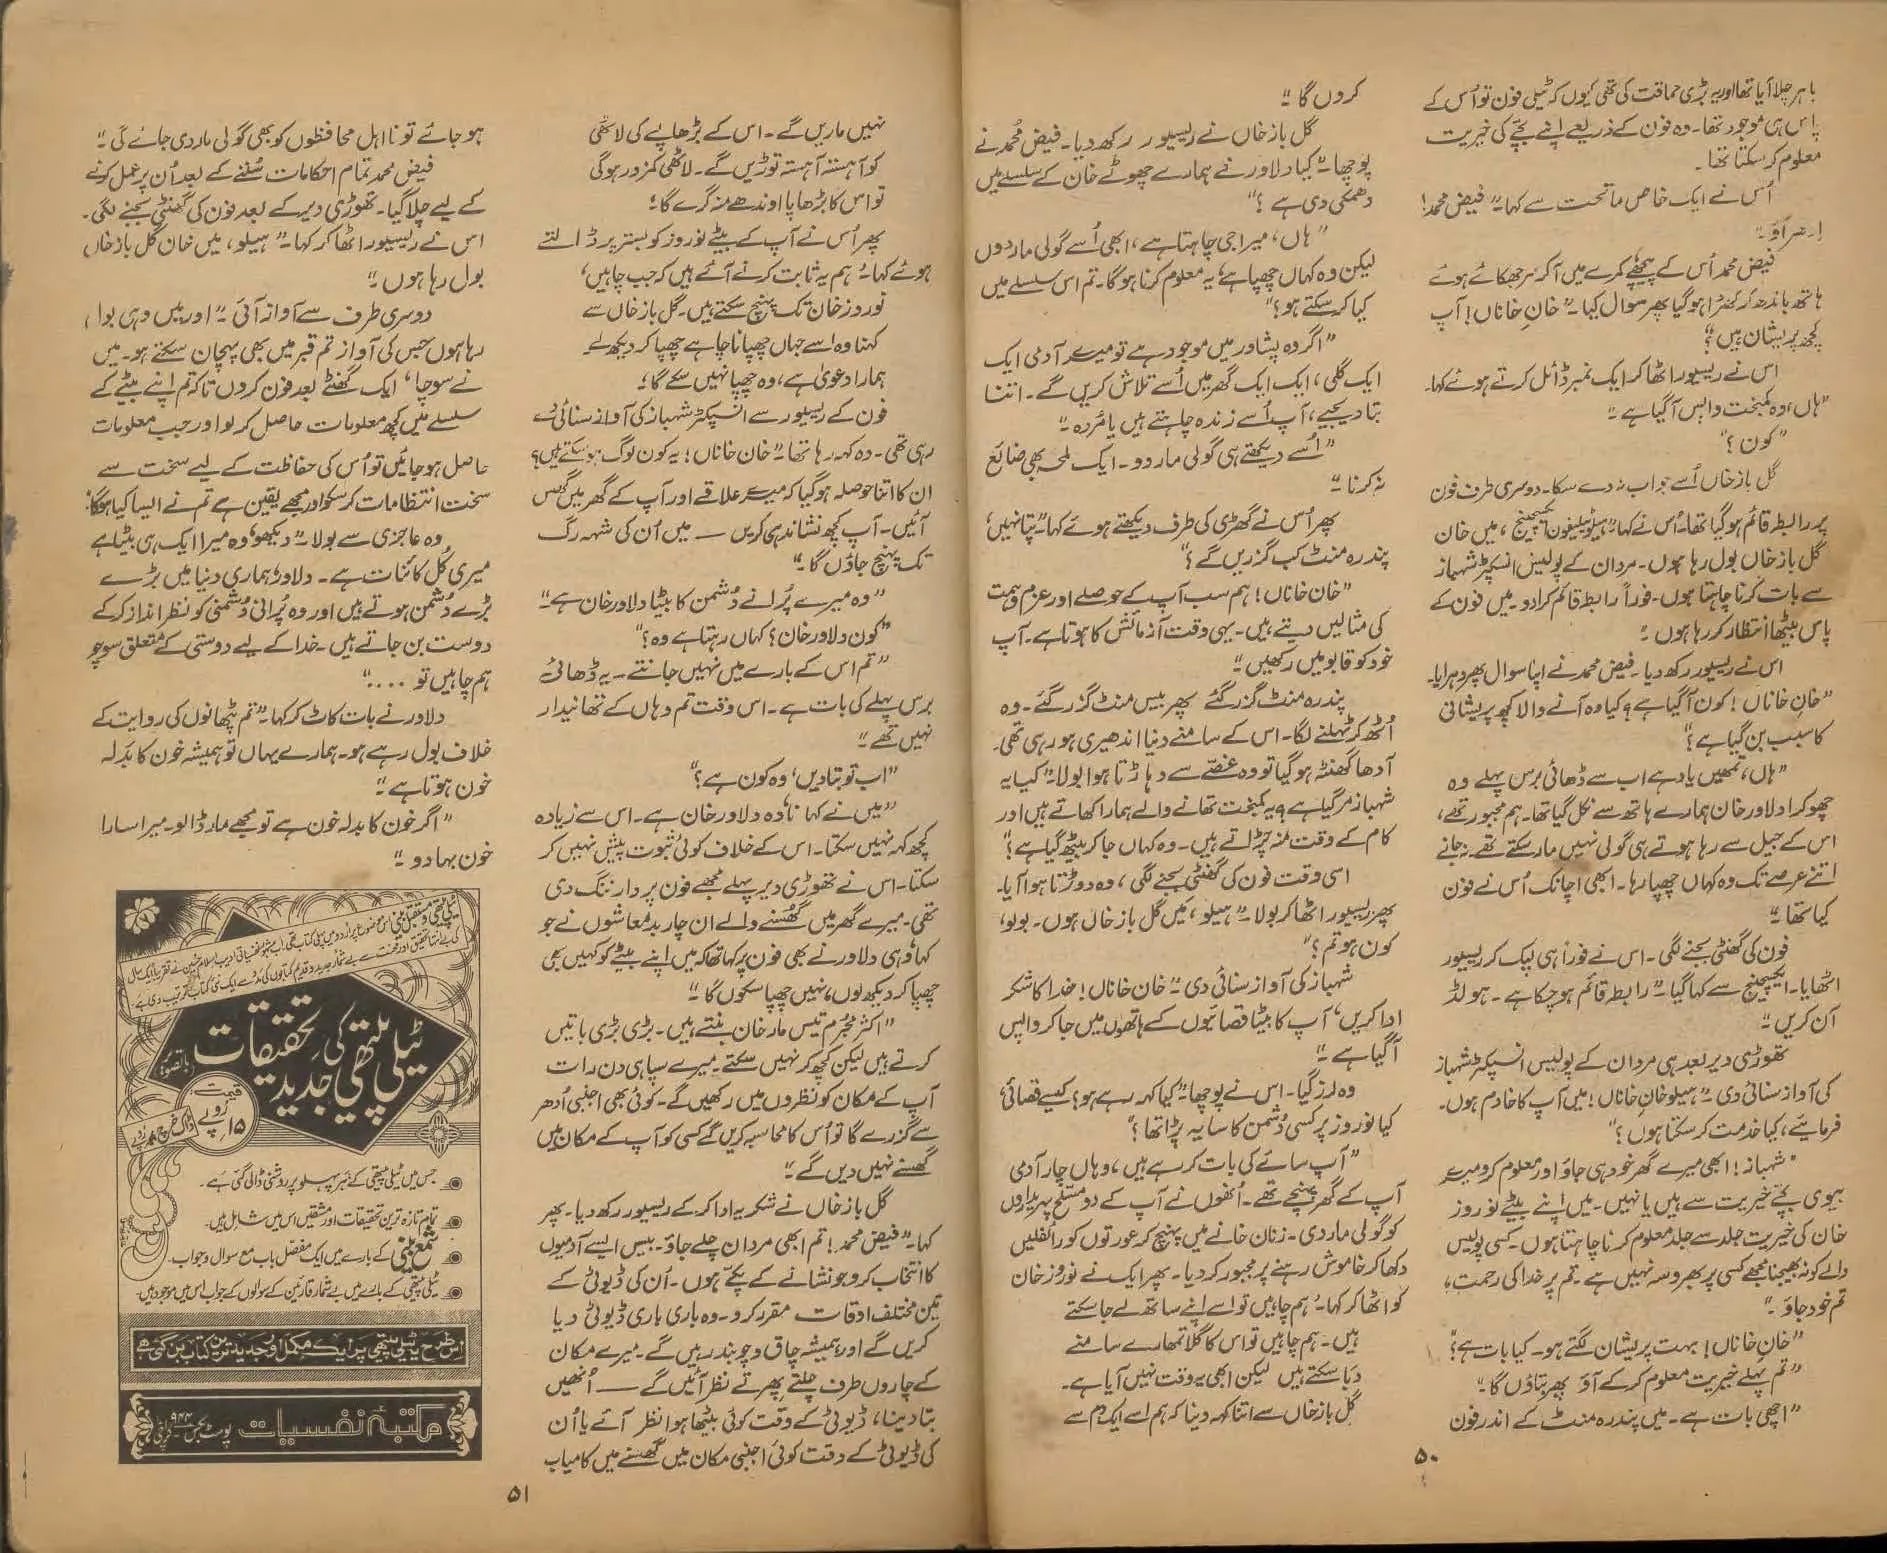 باہر چلا آیا تھا اور یہ بڑی حماقت کی تھی کیوں کہ ٹیلی فون تو اُس کے
پاس ہی موجود تھا۔ وہ فون کے ذریعے اپنے بچے کی خیریت
معلوم کر سکتا تھا۔
اُس نے ایک خاص ماتحت سے کہا۔" فیض محمد!
اِدھر آؤ۔"
فیض محمد اُس کے پیچھے کمرے میں آکر سر جھکائے ہوئے
ہاتھ باندھ کر کھڑا ہو گیا پھر سوال کیا۔" خانِ خاناں! آپ
کچھ پریشان ہیں؟"
اس نے ریسیور اٹھا کر ایک نمبر ڈائل کرتے ہوئے کہا۔
"ہاں، وہ کمبخت واپس آگیا ہے۔"
"کون؟"
گل باز خاں اُسے جواب نہ دے سکا۔ دوسری طرف فون
پر رابطہ قائم ہو گیا تھا۔ اُس نے کہا۔" ہیلو ٹیلیفون ایکسچینج، میں خان
گل باز خاں بول رہا ہوں۔ مردان کے پولیس انسپکٹر شہباز
سے بات کرنا چاہتا ہوں۔ فوراً رابطہ قائم کرا دو۔ میں فون کے
پاس بیٹھا انتظار کر رہا ہوں۔"
اس نے ریسیور رکھ دیا۔ فیض محمد نے اپنا سوال پھر دہرایا۔
"خانِ خاناں! کون آگیا ہے؟ کیا وہ آنے والا کچھ پریشانی
کا سبب بن گیا ہے؟"
"ہاں، تمھیں یاد ہے اب سے ڈھائی برس پہلے وہ
چھوکرا دلاور خان ہمارے ہاتھ سے نکل گیا تھا۔ ہم مجبور تھے،
اس کے جیل سے رہا ہوتے ہی گولی نہیں مار سکتے تھے۔ نہ جانے
اتنے عرصے تک وہ کہاں چھپا رہا۔ ابھی اچانک اُس نے فون
کیا تھا۔"
فون کی گھنٹی بجنے لگی۔ اس نے فوراً ہی لپک کر ریسیور
اٹھایا۔ ایکسچینج سے کہا گیا۔" رابطہ قائم ہو چکا ہے۔ ہولڈ
آن کریں۔"
تھوڑی دیر بعد ہی مردان کے پولیس انسپکٹر شہباز
کی آواز سنائی دی۔" ہیلو خانِ خاناں! میں آپ کا خادم ہوں۔
فرمائیے، کیا خدمت کر سکتا ہوں؟"
"شہباز! ابھی میرے گھر خود ہی جاؤ اور معلوم کرو میرے
بیوی بچے خیریت سے ہیں یا نہیں۔ میں اپنے بیٹے نوروز
خان کی خیریت جلد سے جلد معلوم کرنا چاہتا ہوں۔ کسی پولیس
والے کو نہ بھیجنا مجھے کسی پر بھروسہ نہیں ہے۔ تم پر خدا کی رحمت،
تم خود جاؤ۔"
"خانِ خاناں! بہت پریشان لگتے ہو۔ کیا بات ہے؟"
"تم پہلے خیریت معلوم کر کے آؤ پھر بتاؤں گا۔"
"اچھی بات ہے۔ میں پندرہ منٹ کے اندر فون
۵۰
کردوں گا۔"
گل باز خاں نے ریسیور رکھ دیا۔ فیض محمد نے
پوچھا۔" کیا دلاور نے ہمارے چھوٹے خان کے سلسلے میں
دھمکی دی ہے؟"
"ہاں، میرا جی چاہتا ہے، ابھی اُسے گولی مار دوں
لیکن وہ کہاں چھپا ہے، یہ معلوم کرنا ہوگا۔ تم اس سلسلے میں
کیا کر سکتے ہو؟"
"اگر وہ پشاور میں موجود ہے تو میرے آدمی ایک
ایک گلی، ایک ایک گھر میں اُسے تلاش کریں گے۔ اتنا
بتا دیجیے، آپ اُسے زندہ چاہتے ہیں یا مُردہ۔"
"اُسے دیکھتے ہی گولی مار دو۔ ایک لمحہ بھی ضائع
نہ کرنا۔"
پھر اُس نے گھڑی کی طرف دیکھتے ہوئے کہا۔" پتا نہیں،
پندرہ منٹ کب گزریں گے؟"
"خانِ خاناں! ہم سب آپ کے حوصلے اور عزم و ہمت
کی مثالیں دیتے ہیں۔ یہی وقت آزمائش کا ہوتا ہے۔ آپ
خود کو قابو میں رکھیں۔"
پندرہ منٹ گزر گئے پھر بیس منٹ گزر گئے۔ وہ
اُٹھ کر ٹہلنے لگا۔ اس کے سامنے دنیا اندھیری ہو رہی تھی۔
آدھا گھنٹہ ہو گیا تو وہ غصے سے دہاڑتا ہوا بولا۔" کیا یہ
شہباز مر گیا ہے؟ یہ کمبخت تھانے والے ہمارا کھاتے ہیں اور
کام کے وقت منہ چڑاتے ہیں۔ وہ کہاں جا کر بیٹھ گیا ہے؟"
اسی وقت فون کی گھنٹی بجنے لگی، وہ دوڑتا ہوا آیا۔
پھر ریسیور اٹھا کر بولا۔" ہیلو، میں گل باز خاں ہوں۔ بولو،
کون ہو تم؟"
شہباز کی آواز سنائی دی۔" خانِ خاناں! خدا کا شکر
ادا کریں، آپ کا بیٹا قصائیوں کے ہاتھوں میں جا کر واپس
آگیا ہے۔"
وہ لرز گیا۔ اس نے پوچھا۔" کیا کہہ رہے ہو؟ کیسے قصائی؟
کیا نوروز پر کسی دُشمن کا سایہ پڑا تھا؟"
"آپ سائے کی بات کر رہے ہیں، وہاں چار آدمی
آپ کے گھر پہنچے تھے۔ اُنھوں نے آپ کے دو مسلح پہریداروں
کو گولی مار دی۔ زنان خانے میں پہنچ کر عورتوں کو رائفلیں
دکھا کر خاموش رہنے پر مجبور کر دیا۔ پھر ایک نے نوروز خان
کو اٹھا کر کہا۔' ہم چاہیں تو اسے اپنے ساتھ لے جا سکتے
ہیں۔ ہم چاہیں تو اس کا گلا تمھارے سامنے
دبا سکتے ہیں لیکن ابھی یہ وقت نہیں آیا ہے۔
گل باز خاں سے اتنا کہہ دینا کہ ہم اسے ایک دم سے
نہیں ماریں گے۔ اس کے بڑھاپے کی لاٹھی
کو آہستہ آہستہ توڑیں گے۔ لاٹھی کمزور ہوگی
تو اس کا بڑھاپا اوندھے منہ گرے گا،'
پھر اُس نے آپ کے بیٹے نوروز کو بستر پر ڈالتے
ہوئے کہا۔' ہم یہ ثابت کرنے آئے ہیں کہ جب چاہیں،
نوروز خان تک پہنچ سکتے ہیں۔ گل باز خاں سے
کہنا وہ اسے جہاں چھپانا چاہے چھپا کر دیکھ لے۔
ہمارا دعویٰ ہے، وہ چھپا نہیں سکے گا،'
فون کے ریسیور سے انسپکٹر شہباز کی آواز سنائی دے
رہی تھی۔ وہ کہہ رہا تھا۔" خانِ خاناں! یہ کون لوگ ہو سکتے ہیں؟
ان کا اتنا حوصلہ ہو گیا کہ میرے علاقے اور آپ کے گھر میں گھس
آئیں۔ آپ کچھ نشاندہی کریں — میں اُن کی شہہ رگ
تک پہنچ جاؤں گا۔"
"وہ میرے پُرانے دُشمن کا بیٹا دلاور خان ہے۔"
"کون دلاور خان؟ کہاں رہتا ہے وہ؟"
"تم اس کے بارے میں نہیں جانتے۔ یہ ڈھائی
برس پہلے کی بات ہے۔ اس وقت تم وہاں کے تھانیدار
نہیں تھے۔"
"اب تو بتادیں، وہ کون ہے؟"
"میں نے کہا نا، وہ دلاور خان ہے۔ اس سے زیادہ
کچھ کہہ نہیں سکتا۔ اس کے خلاف کوئی ثبوت پیش نہیں کر
سکتا۔ اس نے تھوڑی دیر پہلے مجھے فون پر وارننگ دی
تھی۔ میرے گھر میں گھُسنے والے ان چار بدمعاشوں نے جو
کہا، وہی دلاور نے بھی فون پر کہا تھا کہ میں اپنے بیٹے کو کہیں بھی
چھپا کر دیکھ لوں، نہیں چھپا سکوں گا۔"
"اکثر مجرم تیس مار خان بنتے ہیں۔ بڑی بڑی باتیں
کرتے ہیں لیکن کچھ کر نہیں سکتے۔ میرے سپاہی دن رات
آپ کے مکان کو نظروں میں رکھیں گے۔ کوئی بھی اجنبی اُدھر
سے گزرے گا تو اُس کا محاسبہ کریں گے کسی کو آپ کے مکان میں
گھسنے نہیں دیں گے۔"
گل باز خاں نے شکریہ ادا کر کے ریسیور رکھ دیا۔ پھر
کہا۔" فیض محمد! تم ابھی مردان چلے جاؤ۔ بیس ایسے آدمیوں
کا انتخاب کرو جو نشانے کے پکے ہوں۔ اُن کی ڈیوٹی کے
تین مختلف اوقات مقرر کرو۔ وہ باری باری ڈیوٹی دیا
کریں گے اور ہمیشہ چاق و چوبند رہیں گے۔ میرے مکان
کے چاروں طرف چلتے پھرتے نظر آئیں گے — اُنھیں
بتا دینا، ڈیوٹی کے وقت کوئی بیٹھا ہوا نظر آئے یا اُن
کی ڈیوٹی کے وقت کوئی اجنبی مکان میں گھسنے میں کامیاب
ہو جائے تو نا اہل محافظوں کو بھی گولی مار دی جائے گی۔"
فیض محمد تمام احکامات سُننے کے بعد اُن پر عمل کرنے
کے لیے چلا گیا۔ تھوڑی دیر کے بعد فون کی گھنٹی بجنے لگی۔
اس نے ریسیور اٹھا کر کہا۔" ہیلو، میں خان گل باز خاں
بول رہا ہوں۔"
دوسری طرف سے آواز آئی۔" اور میں وہی بول
رہا ہوں جس کی آواز تم قبر میں بھی پہچان سکتے ہو۔ میں
نے سوچا، ایک گھنٹے بعد فون کروں تاکہ تم اپنے بیٹے کے
سلسلے میں کچھ معلومات حاصل کر لو اور جب معلومات
حاصل ہو جائیں تو اُس کی حفاظت کے لیے سخت سے
سخت انتظامات کر سکو اور مجھے یقین ہے تم نے ایسا کیا ہوگا"
وہ عاجزی سے بولا۔" دیکھو، وہ میرا ایک ہی بیٹا ہے
میری کُل کائنات ہے۔ دلاور! ہماری دنیا میں بڑے
بڑے دُشمن ہوتے ہیں اور وہ پُرانی دُشمنی کو نظر انداز کر کے
دوست بن جاتے ہیں۔ خدا کے لیے دوستی کے متعلق سوچو
ہم چاہیں تو ...."
دلاور نے بات کاٹ کر کہا۔" تم پٹھانوں کی روایت کے
خلاف بول رہے ہو۔ ہمارے یہاں تو ہمیشہ خون کا بدلہ
خون ہوتا ہے۔"
"اگر خون کا بدلہ خون ہے تو مجھے مار ڈالو۔ میرا سارا
خون بہا دو۔"
ٹیلی پیتھی کی جدید تحقیقات
(بالتصویر)
قیمت
۱۵ روپے
جس میں ٹیلی پیتھی کے ہر پہلو پر روشنی ڈالی گئی ہے۔
تمام تازہ ترین تحقیقات اور مشقیں اس میں شامل ہیں۔
شمع بینی کے بارے میں ایک مفصل باب مع سوال و جواب۔
ٹیلی پیتھی کے بارے میں بے شمار قارئین کے سوالوں کے جواب اس میں موجود ہیں۔
اس طرح یہ ٹیلی پیتھی پر ایک مکمل اور جدید ترین کتاب بن گئی ہے
مکتبۂ نفسیات پوسٹ بکس ۹۴۴ کراچی
۵۱